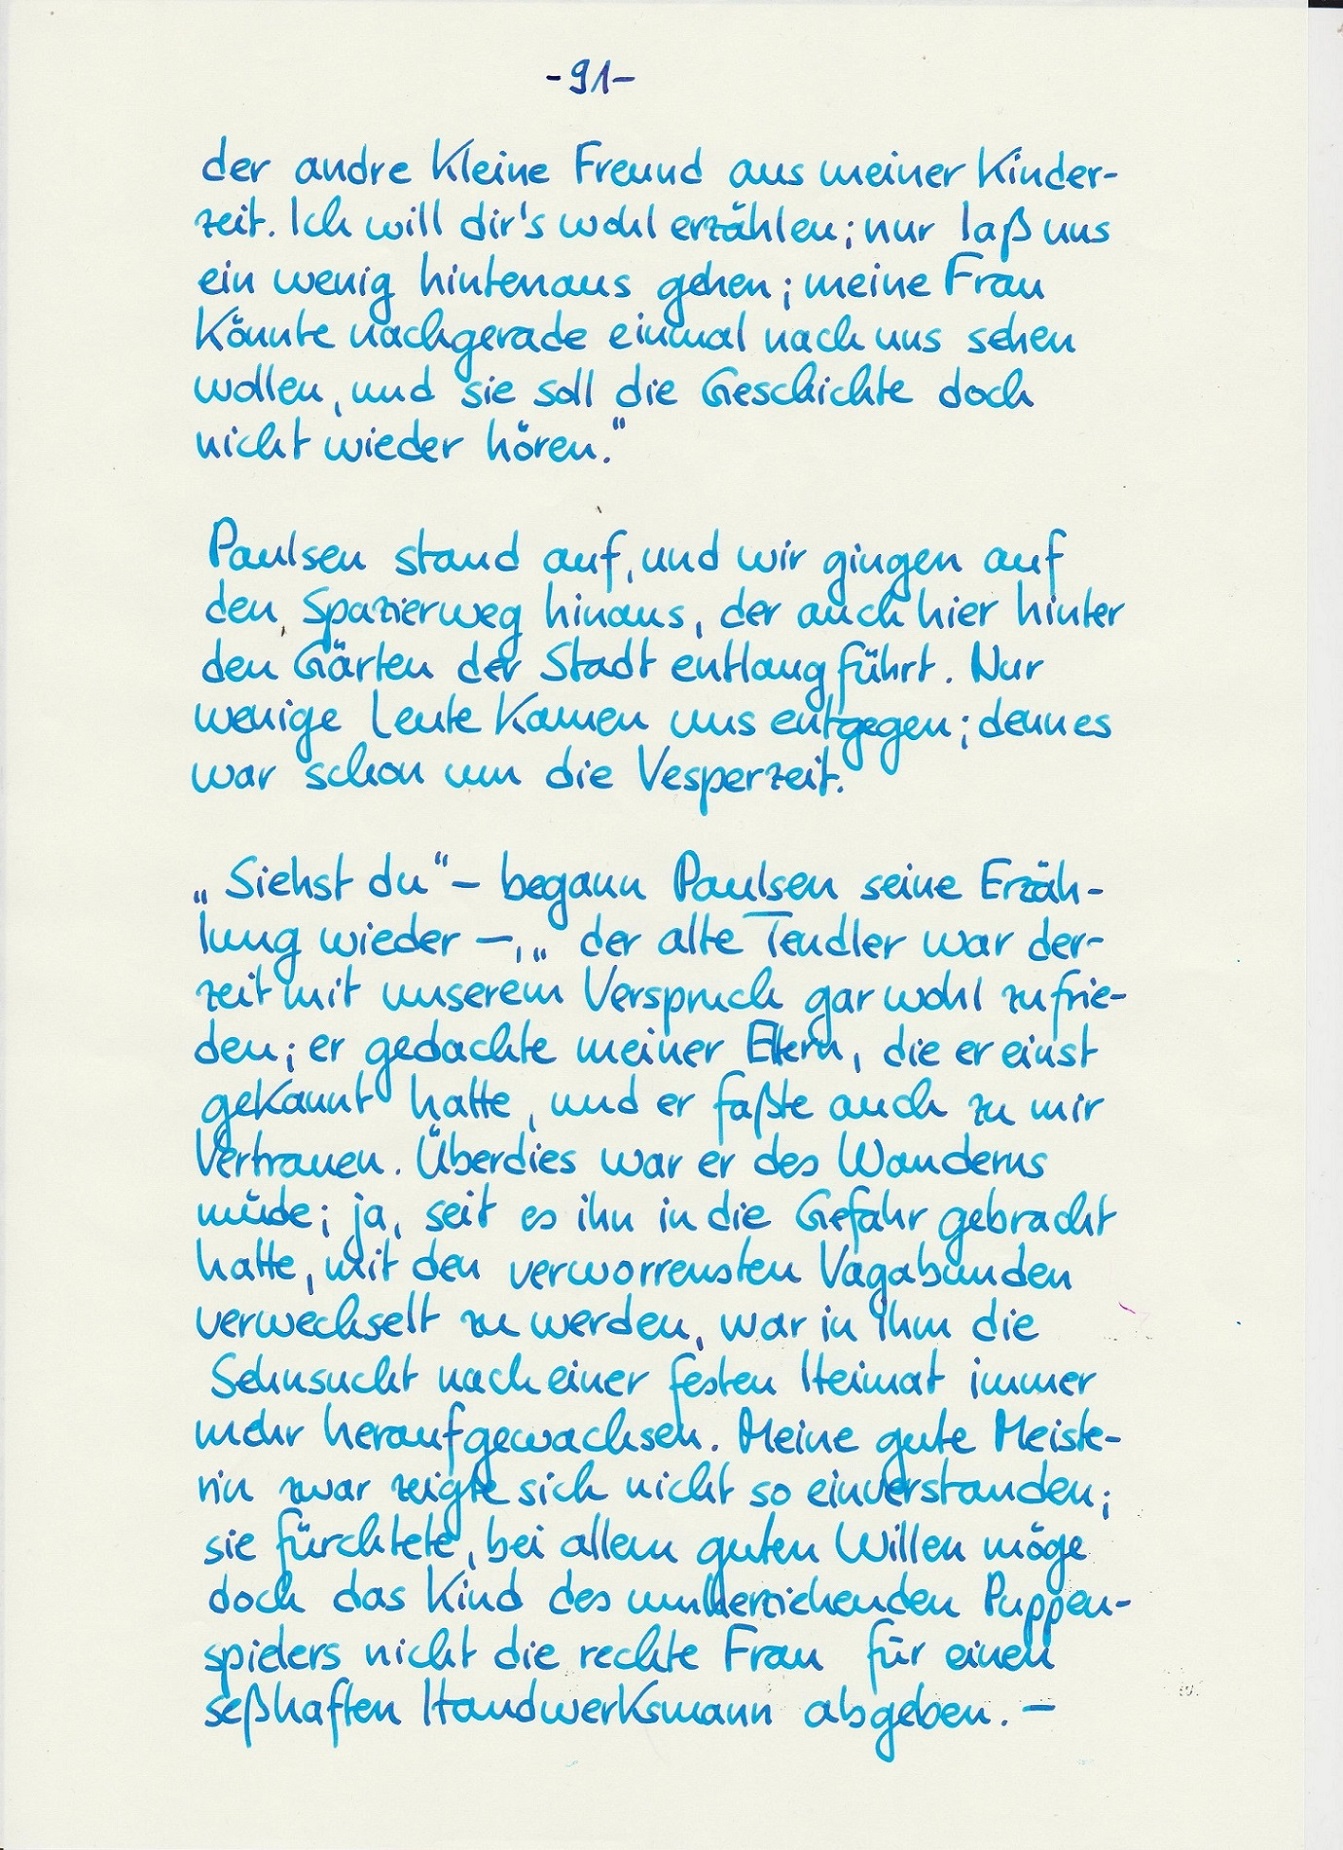 -91-
der andre kleine Freund aus meiner Kinder-
zeit. Ich will dir's wohl erzählen; nur laß uns
ein wenig hintenaus gehen; meine Frau
könnte nachgerade einmal nach uns sehen
wollen, und sie soll die Geschichte doch
nicht wieder hören."
Paulsen stand auf, und wir gingen auf
den Spazierweg hinaus, der auch hier hinter
den Gärten der Stadt entlang führt. Nur
wenige Leute kamen uns entgegen; denn es
war schon um die Vesperzeit.
„Siehst du" – begann Paulsen seine Erzäh-
lung wieder –, „der alte Tendler war der-
zeit mit unserem Verspruch gar wohl zufrie-
den; er gedachte meiner Eltern, die er einst
gekannt hatte, und er faßte auch zu mir
Vertrauen. Überdies war er des Wanderns
müde; ja, seit es ihn in die Gefahr gebracht
hatte, mit den verworrensten Vagabunden
verwechselt zu werden, war in ihm die
Sehnsucht nach einer festen Heimat immer
mehr heraufgewachsen. Meine gute Meiste-
rin zwar zeigte sich nicht so einverstanden;
sie fürchtete, bei allem guten Willen möge
doch das Kind des umherziehenden Puppen-
spielers nicht die rechte Frau für einen
seßhaften Handwerksmann abgeben. –